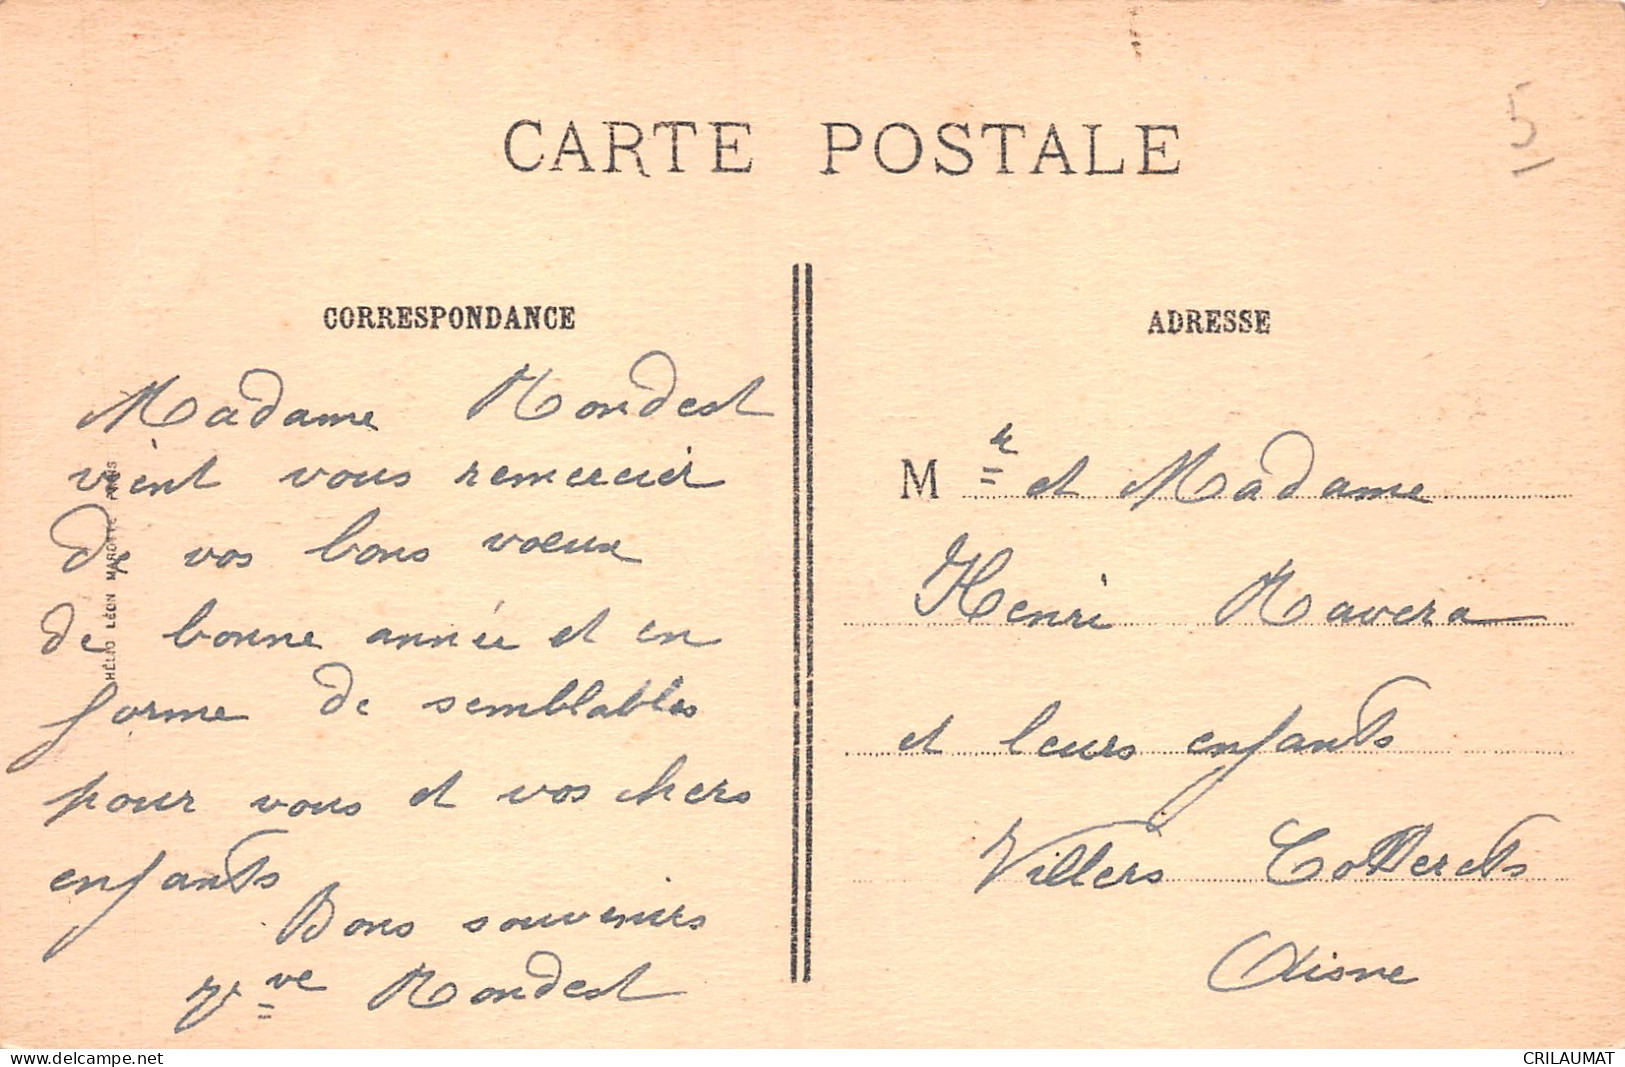 CARTE POSTALE
5
CORRESPONDANCE
Madame Rondest
vient vous remercier
de vos bons voeux
de bonne année et en
forme de semblables
pour vous et vos chers
enfants
Bons souvenirs
Vve Rondest
HÉLIO LÉON MAROTTE PARIS
ADRESSE
Mr et Madame
Henri Ravera
et leurs enfants
Villers Cotterets
Aisne
www.delcampe.net
CRILAUMAT